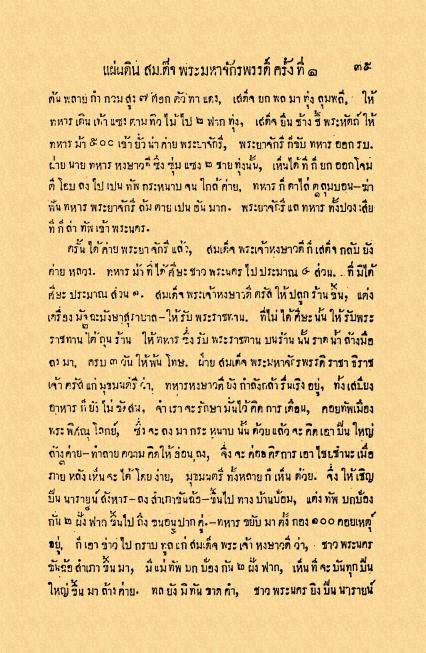 แผ่นดิน สม.ดีจ พระมหาจักรพรรดิ์ ครั้ง ที่ ๑ ๓๕
คัน พลาย กำ กวม สูง ๗ ศอก ตัว ทา แดง, เสด็จ ยก พล มา ทุ่ง ลุมพลี, ให้
ทหาร เดิน เท้า แซง ตาม ทิว ไม้ ไป ๒ ฟาก ทุ่ง, เสด็จ ยืน ช้าง ชี้ พระหัตถ์ ให้
ทหาร ม้า ๕๐๐ เข้า ยั่ว น่า ค่าย พระยาจักรี, พระยาจักรี ก็ ขับ ทหาร ออก รบ.
ฝ่าย นาย ทหาร หงษาวดี ซึ่ง ซุ่ม แซง ๒ ชาย ทุ่งนั้น, เห็นได้ ที่ ก็ ยก ออก โจม
ตี โอบ ลง ไป เปน ทัพ กระหนาบ จน ใกล้ ค่าย, ทหาร ก็ ดาไล่ คลุมบอน-ฆ่า
ฟัน ทหาร พระยาจักรี ล้ม ตาย เปน อัน มาก. พระยาจักรี แล ทหาร ทั้งปวง เสีย
ที่ ก็ ล่า ทัพ เข้า พระนคร.
ครั้น ได้ ค่าย พระยา จักรี แล้ว, สมเด็จ พระเจ้าหงษาวดี ก็ เสด็จ กลับ ยัง
ค่าย หลวง. ทหาร ม้า ที่ ได้ ศีษะ ชาว พระนคร ไป ประมาณ ๔ ส่วน. ที่ มิได้
ศีษะ ประมาณ ส่วน ๑. สมเด็จ พระเจ้าหงษาวดี ตรัส ให้ ปลูก ร้าน ขึ้น, แต่ง
เครื่อง มัจฉะมังษาสุราบาล-ให้ รับ พระราชทาน. ที่ไม่ ได้ ศีษะ นั้น ให้ รับพระ
ราชทาน ใต้ ถุน ร้าน ให้ ทหาร ซึ่ง รับ พระราชทาน บนร้าน นั้น ราด น้ำ ล้างมือ
ลง มา, ครบ ๓ วัน ให้พ้น โทษ. ฝ่าย สมเด็จ พระมหาจักรพรรดิ ราชา ธิราช
เจ้า ตรัส แก่ มุขมนตรี ว่า, ทหารหงษาวดี ยัง กำลังกล้า รื่นเริง อยู่, ทั้ง เสบียง
อาหาร ก็ ยัง ไม่ ขัดสน, จำ เรา จะ รักษา มั่นไว้ คิด การ เดือน, คอยทัพเมือง
พระ พิศณุ โลกย์, ซึ่ง จะ ลง มา กระ หนาบ นั้น ด้วย แล้ว จะ คิด เอา ปืน ใหญ่
ล้างค่าย-ทำลาย ความ คิดให้ อ่อน ลง, จึ่ง จะ ค่อย คิดการ เอา ไชยชำนะ เมื่อ
ภาย หลัง เห็น จะ ได้ โดย ง่าย, มุขมนตรี ทั้งหลาย ก็ เห็น ด้วย. จึ่ง ให้ เชิญ
ปืน นารายน์ สังหาร-ลง สำเภาขันฉ้อ-ขึ้นไป ทาง บ้านป้อม, แต่ง ทัพ บกป้อง
กัน ๒ ฝั่ง ฟาก ขึ้นไป ถึง ขนอนปาก คู.-ทหาร ขยับ มา ตั้ง กอง ๑๐๐ คอยเหตุ
อยู่, ก็ เอา ข่าว ไป กราบ ทูล แก่ สมเด็จ พระ เจ้า หงษาวดี ว่า, ชาว พระนคร
ขันฉ้อ สำเภา ขึ้น มา, มี แม่ ทัพ บก ป้อง กัน ๒ ฝั่ง ฟาก, เห็น ที่ จะ บันทุก ปืน
ใหญ่ ขึ้น มา ล้าง ค่าย. ทูล ยัง มิ ทัน ขาด คำ, ชาว พระนคร ยิง ปืน นารายน์